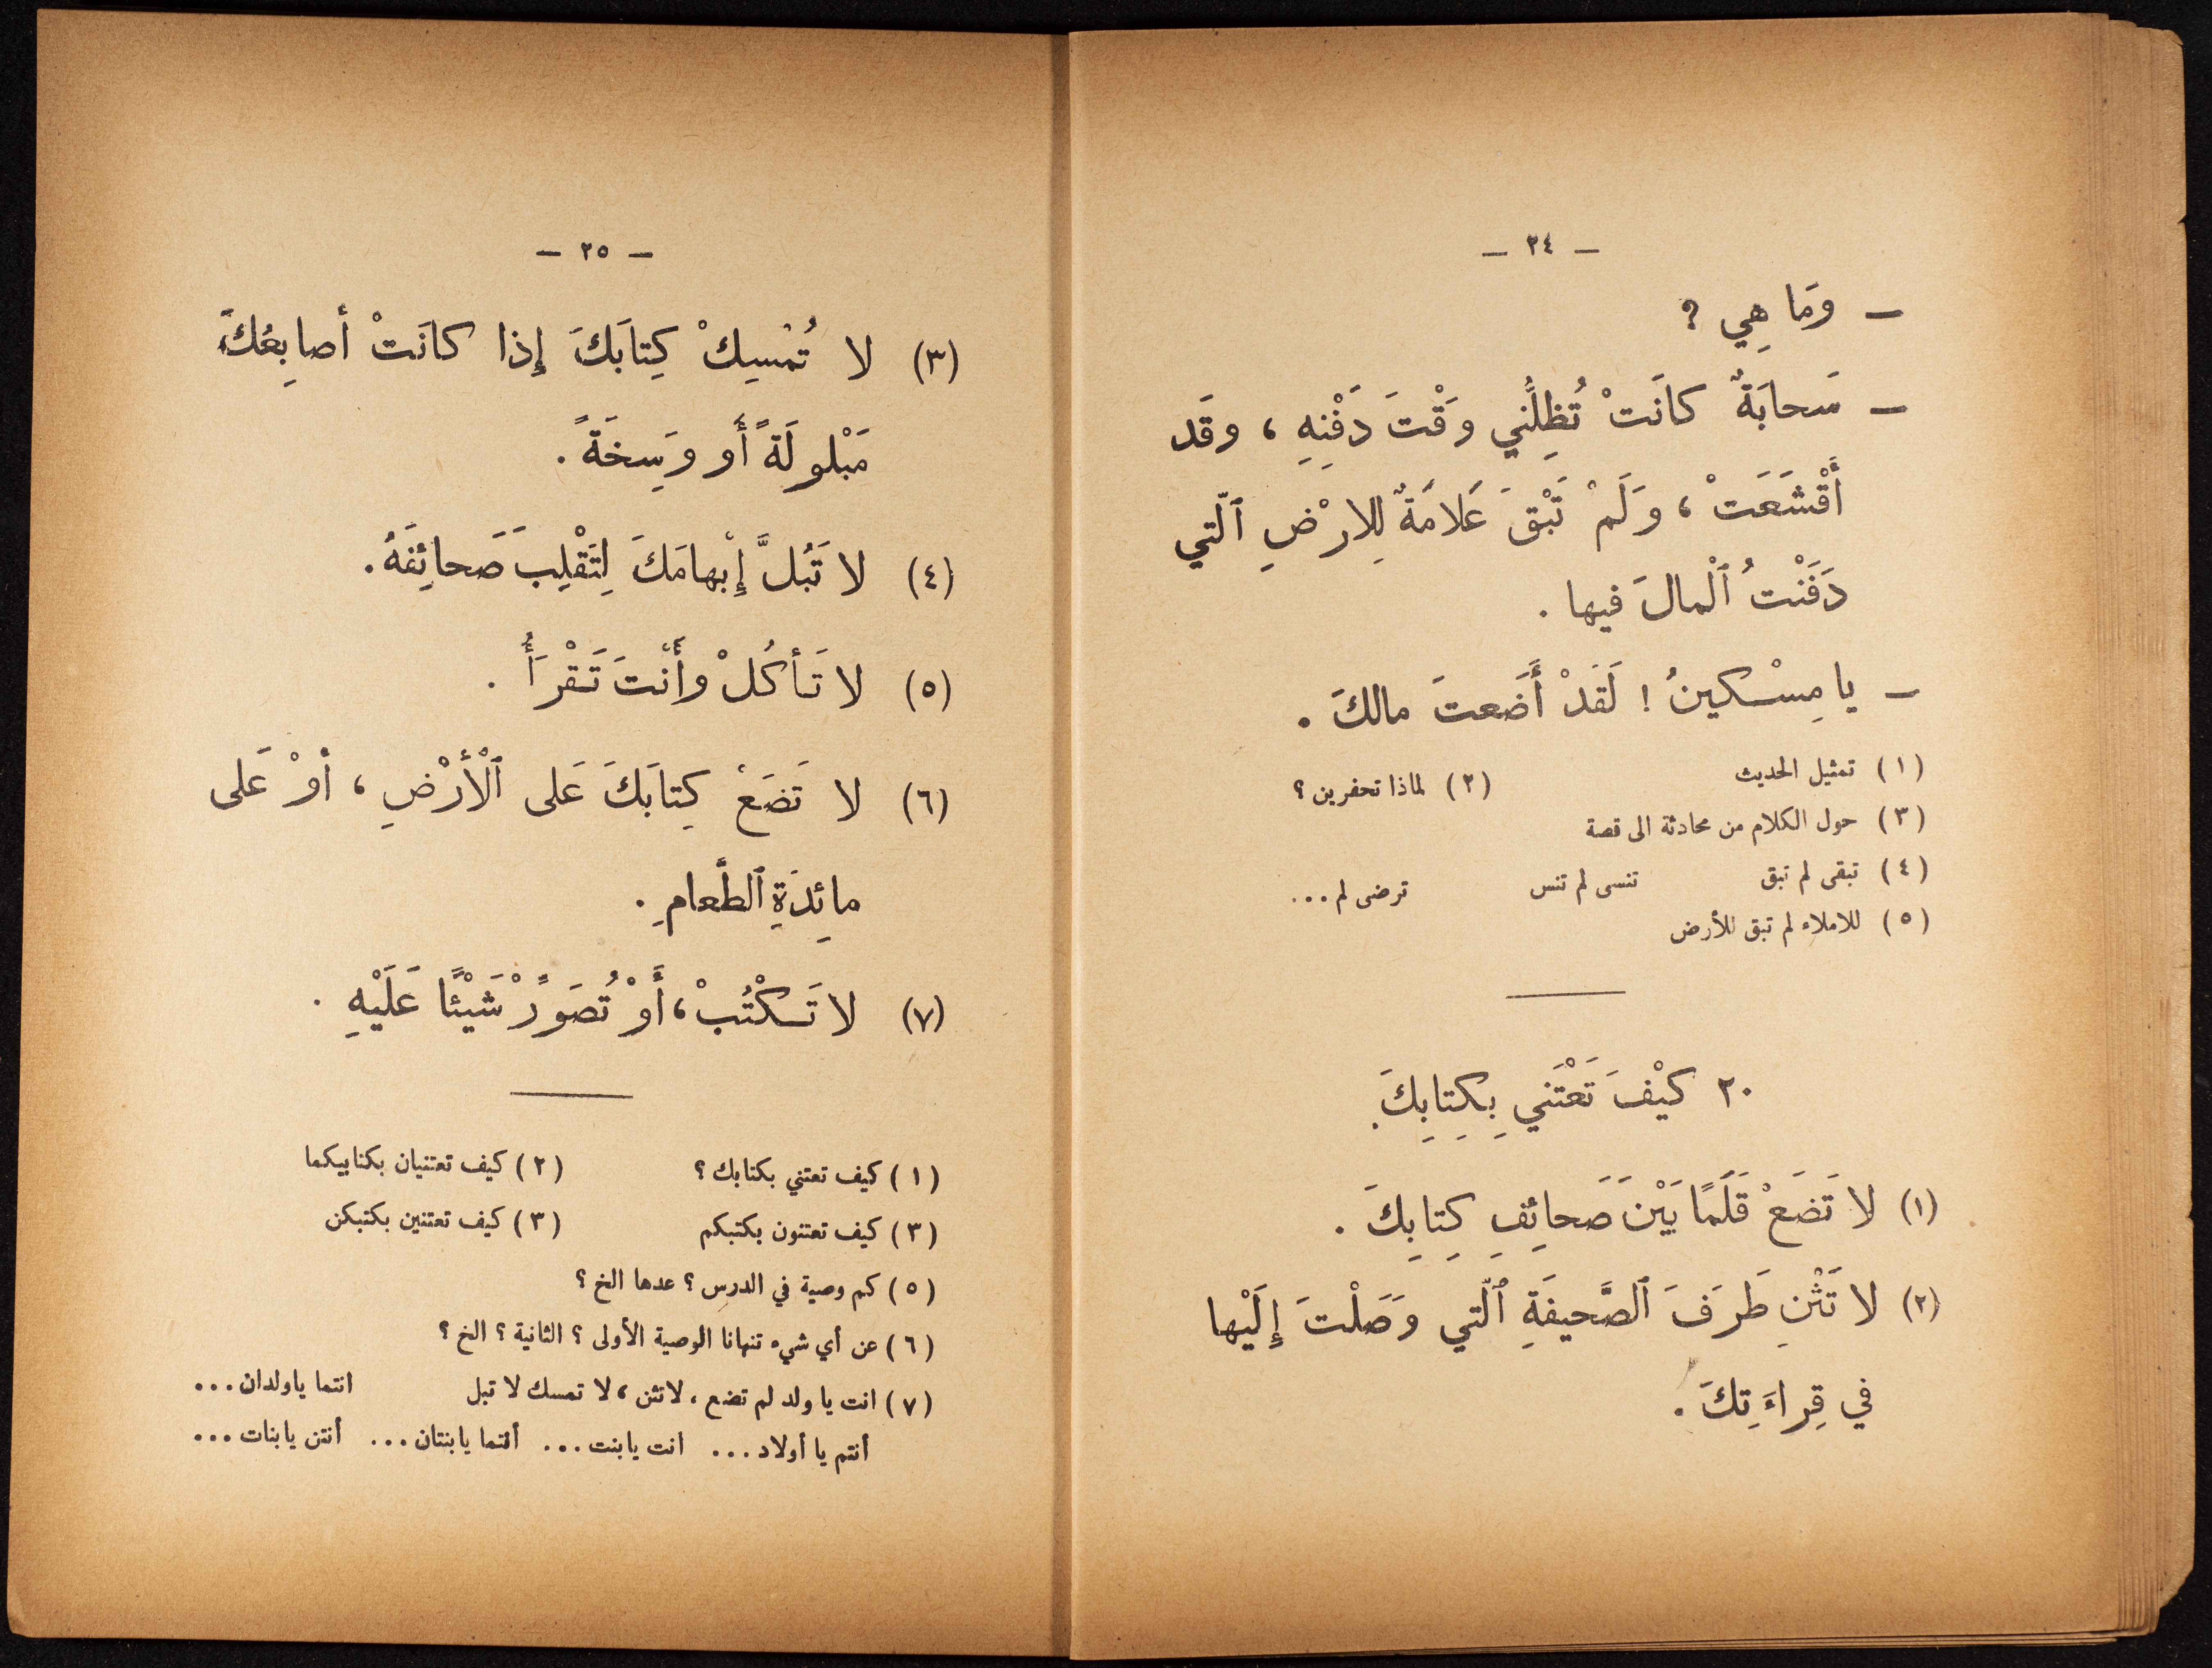 — ٢٤ —
— وَمَا هِي ؟
— سَحابَةٌ كانَتْ تُظِلُّني وَقْتَ دَفْنِهِ ، وقَد
أَقْشَعَتْ ، وَلَمْ تَبْقَ عَلامَةٌ لِلارْضِ ٱلّتي
دَفَنْتُ ٱلْمالَ فيها .
— يا مِسْكينُ ! لَقَدْ أَضَعتَ مالكَ .
(١) تمثيل الحديث (٢) لماذا تحفرين ؟
(٣) حول الكلام من محادثة الى قصة
(٤) تبقى لم تبق تنسى لم تنس ترضى لم ...
(٥) للاملاء لم تبق للأرض
٢٠ كَيْفَ تَعْتَني بِكِتابِكَ.
(١) لا تَضَعْ قَلَمًا بَيْنَ صَحائِفِ كِتابِكَ .
(٢) لا تَثْنِ طَرَفَ ٱلصَّحيفَةِ ٱلّتي وَصَلْتَ إِلَيْها
في قِراءَتِكَ .
— ٢٥ —
(٣) لا تُمْسِكْ كِتابَكَ إِذا كانَتْ أصابِعُكَ
مَبْلولَةً أَو وَسِخَةً .
(٤) لا تَبُلَّ إِبْهامَكَ لِتَقْلِبَ صَحائِفَهُ .
(٥) لا تَأكُلْ وأَنْتَ تَقْرَأُ .
(٦) لا تَضَعْ كِتابَكَ عَلى ٱلْأَرْضِ ، أوْ عَلى
مائِدَةِ ٱلطَّعامِ .
(٧) لا تَكْتُبْ ، أَوْ تُصَوِّرْ شَيْئًا عَلَيْهِ .
(١) كيف تعتني بكتابك ؟ (٢) كيف تعتنيان بكتابيكما
(٣) كيف تعتنون بكتبكم (٣) كيف تعتنين بكتبكن
(٥) كم وصية في الدرس ؟ عدها الخ ؟
(٦) عن أي شيء تنهانا الوصية الأولى ؟ الثانية ؟ الخ ؟
(٧) انت يا ولد لم تضع ، لاتثن ، لا تمسك لا تبل انتما ياولدان ...
أنتم يا أولاد ... انت يا بنت ... أنتما يا بنتان ... أنتن يا بنات ...